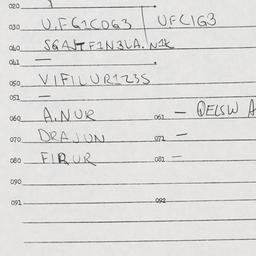 020
030 U.FG1CDG3 UFCIG3
040 SGAJTF1N3LA.N1K
041 —
050 VIFILUR1235
051 —
060 A.NUR 061 — DELSW A
070 DRAJUN 071 —
080 FIRUR 081 —
090
091 092